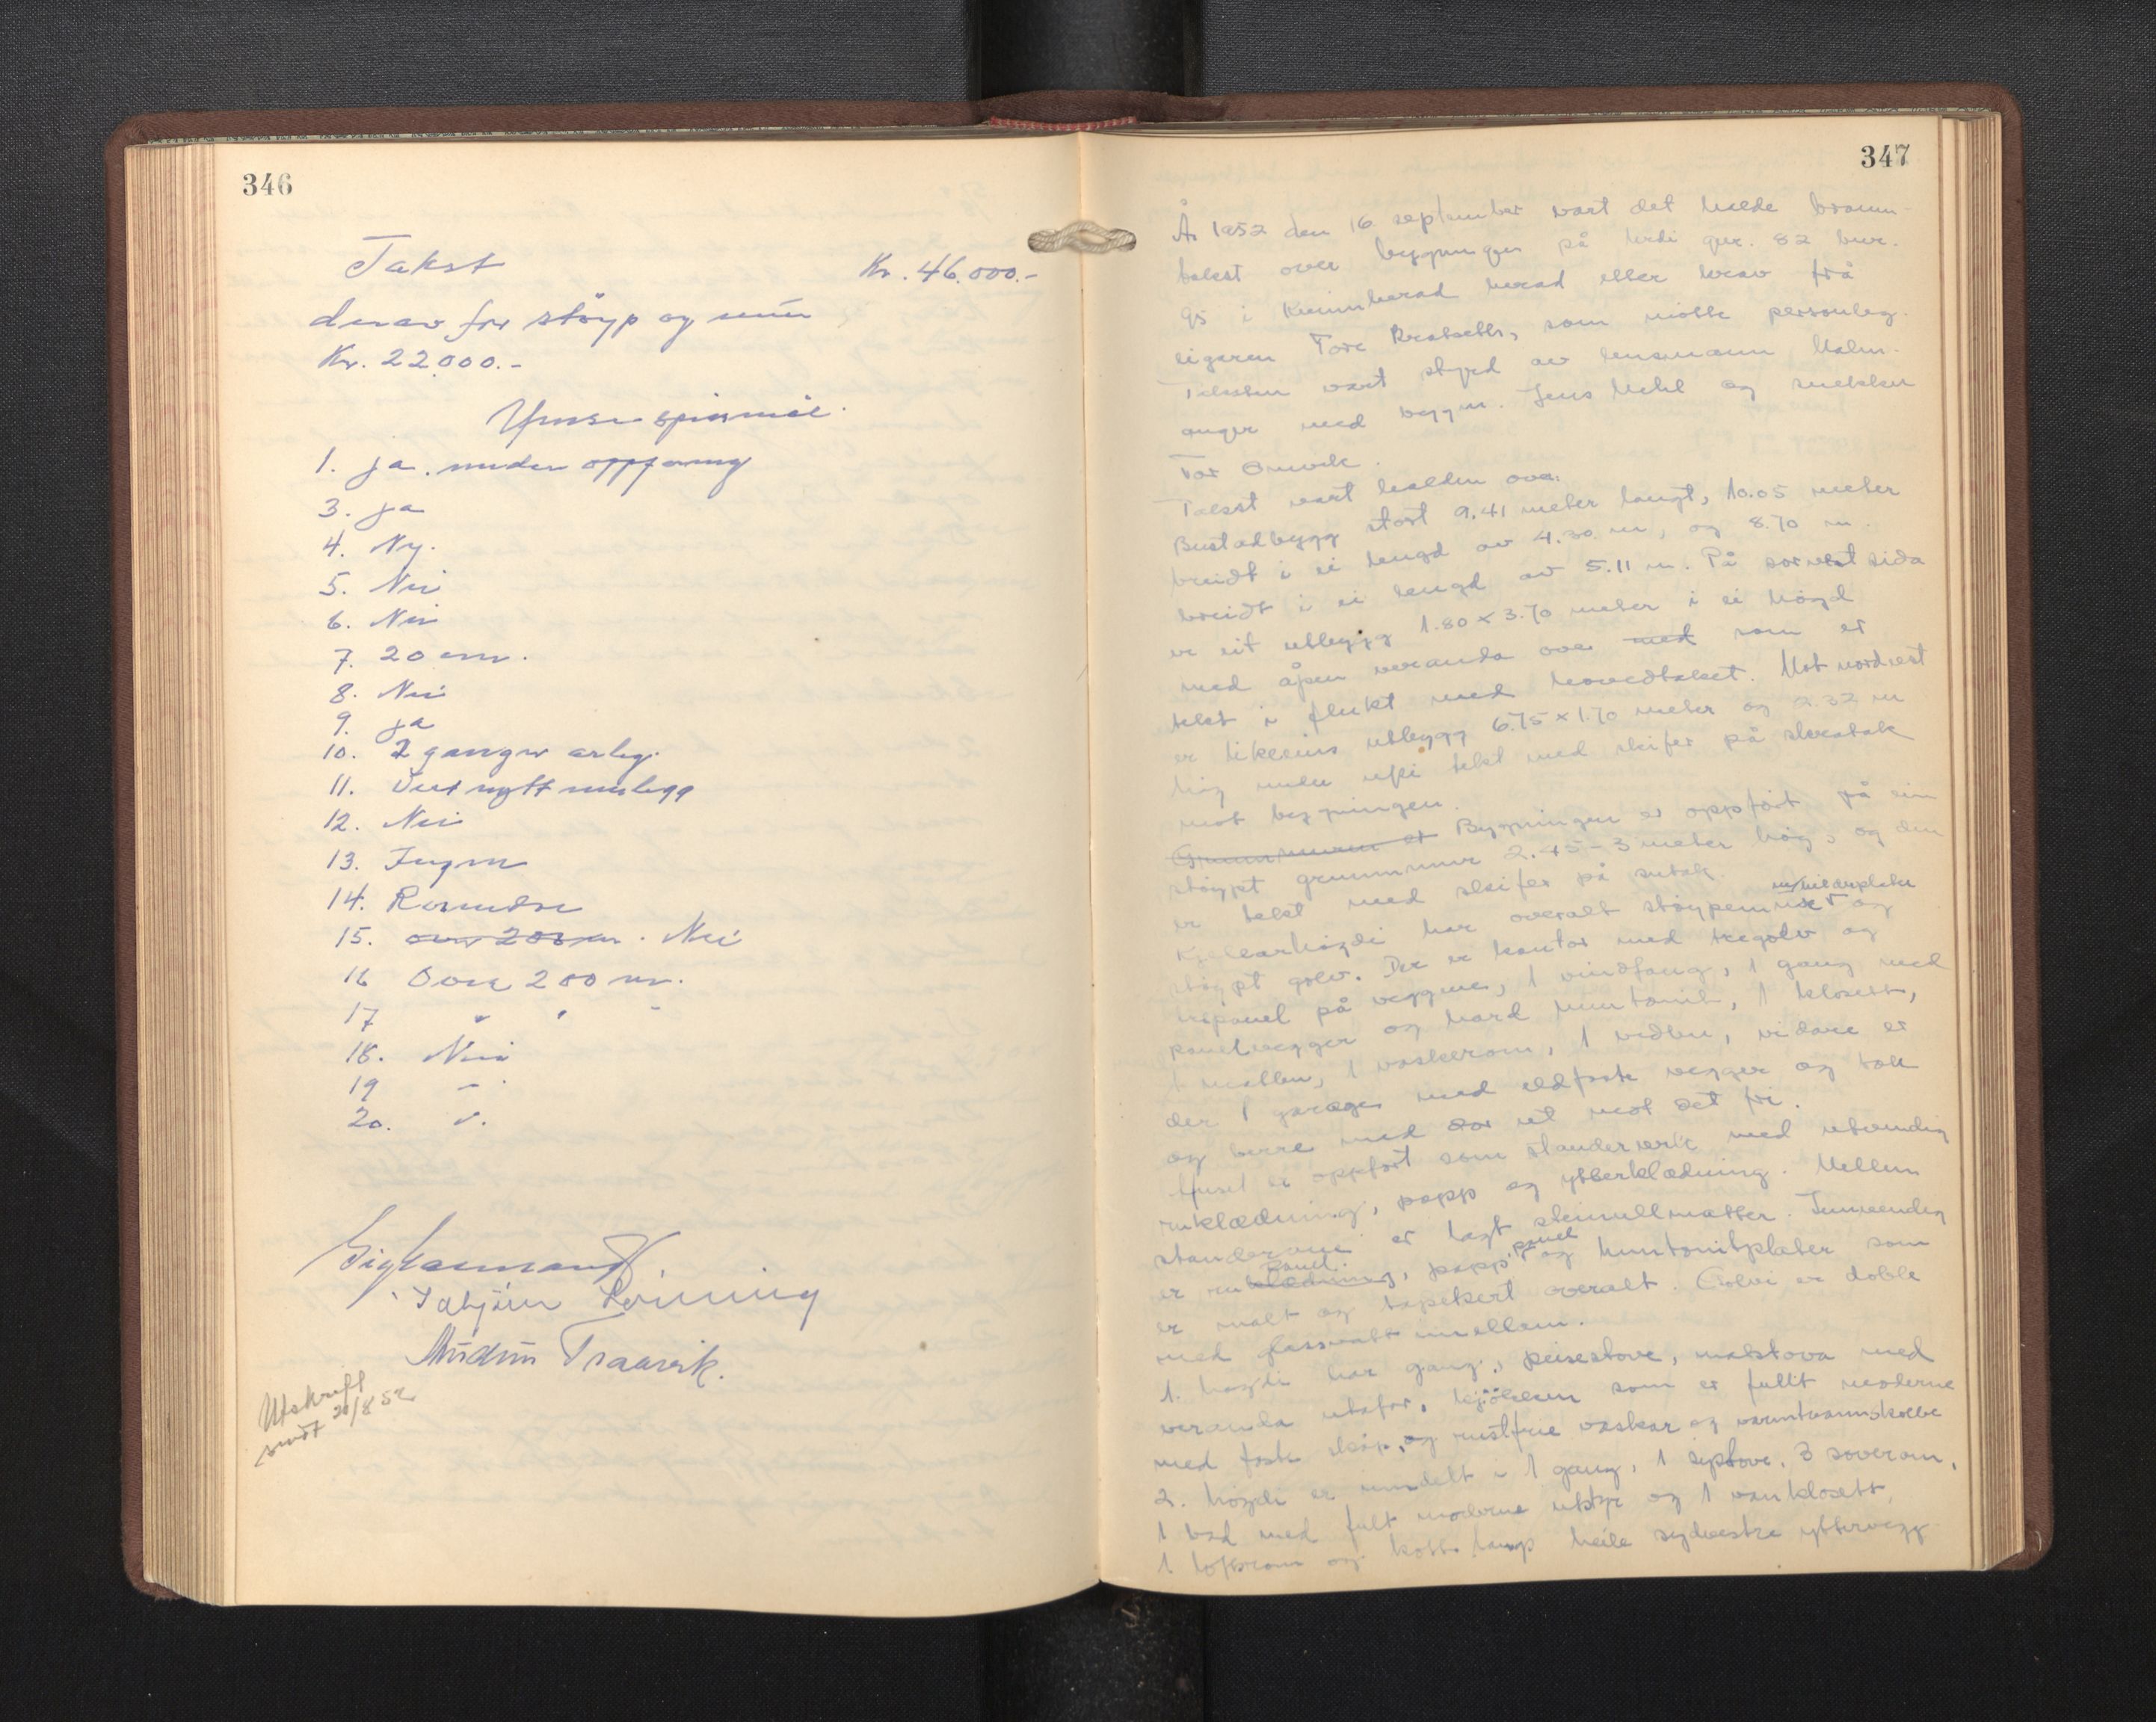 346
Takst Kr. 46.000.-
derav for støyp og mur
Kr. 22.000.-
Ymse spørsmål.
1. Ja. under oppføring
3. Ja
4. Ny.
5. Nei
6. Nei
7. 20 cm.
8. Nei
9. Ja
10. 2 ganger årleg.
11. Vert nytt innlegg
12. Nei
13. Ingen
14. Rosendal
15. over 200 m. Nei
16 Over 200 m.
17 " " "
18. Nei
19 -
20. ".
Torbjørn Rönning
Audun Traavik.
Utskrift
sendt 20/8 52
347
År 1952 den 16. september vart det helde brann-
takst over bygningen på gnr. 82 bnr.
95 i Kvinnherad herad etter krav frå
eigaren Tore Bratseth, som møtte personleg.
Taksten vart styrd av lensmann Malm-
anger med byggm. Jens Mehl og snekker
Tor Omvik.
Takst vart halden over:
Bustadbygg stort 9.41 meter langt, 10.05 meter
breidt i ei lengd av 4.30 m, og 8.70 m.
breidt i ei lengd av 5.11 m. På sorvest sida
er eit utbygg 1.80 x 3.70 meter i ei høgd
med åpen veranda over med som er
tekt i flukt med hovedtaket. Mot nordvest
er likeeins utbygg 6.75 x 1.70 meter og 2.32 m
høg under ufsi tekt med skifer på skråtak
mot bygningen.
Grunnmuren er Bygningen er oppført på ein
støypt grunnmur 2.45 - 3 meter høg, og den
er tekt med skifer på sutak.
Kjellarhøgdi har overalt støypemur og
støypt golv. Der er kontor med tregolv og
trepanel på veggene, 1 vindfang, 1 gang med
panelvegger og hard huntonit, 1 klosett,
1 matbu, 1 vaskerom, 1 vedbu, vidare er
der 1 garage med eldfaste vegger og tak
og berre med dør ut mot det fri.
Huset er oppført som standerverk med utvendig
ruklædning, papp og ytterklædning. Mellem
standerane er lagt steinullmatter. Innvendig
er ruklædning, panel papp, panel og huntonitplater som
er malt og tapetsert overalt. Golvi er doble
med glassvatt imellem.
1. høgdi har gang, peisestove, matstova med
veranda utafor, kjøkken som er fullt moderne
med faste skåp, og rustfrie vaskar og varmtvannskolbe
2. høgdi er inndelt i 1 gang, 1 systove, 3 soverom,
1 bad med fult moderne utstyr og 1 vanklosett,
1 loftsrom og kott langs heile sydvestre yttervegg